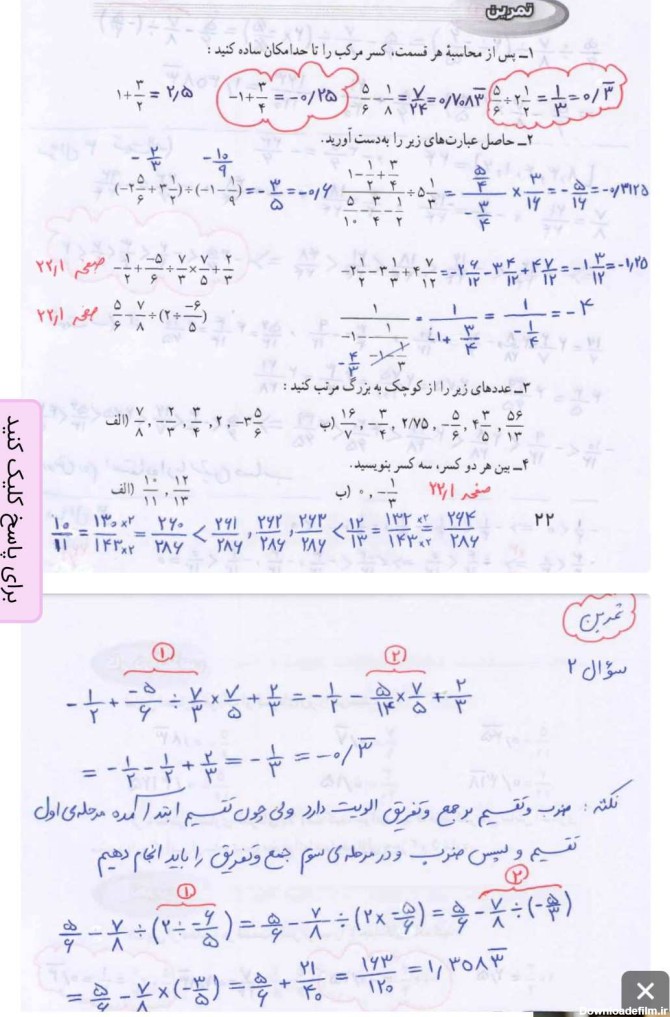 تمرین
۱ــ پس از محاسبهٔ هر قسمت، کسر مرکب را تا حدامکان ساده کنید :
۱+۳/۲ = ۲٫۵   -۱+۳/۴ = -۰/۲۵   ۵/۶ - ۱/۸ = ۷/۲۴ = ۰/۷۰۸۳   ۵/۶ ÷ ۲ ۱/۲ = ۱/۳ = ۰/۳
۲ــ حاصل عبارت‌های زیر را به‌دست آورید.
-۲/۳   -۱۰/۹
(-۲ ۵/۶ + ۳ ۱/۲) ÷ (-۱ - ۱/۹) = -۳/۵ = -۰/۶   ÷ ۵ ۱/۳ = (۵/۴)/(-۳/۴) × ۳/۱۶ = -۵/۱۶ = -۰/۳۱۲۵
-۱/۲ + -۵/۶ ÷ ۷/۳ × ۷/۵ + ۲/۳ صفحه ۲۲/۱   -۲ ۱/۲ - ۳ ۱/۳ + ۴ ۷/۱۲ = -۲ ۶/۱۲ - ۳ ۴/۱۲ + ۴ ۷/۱۲ = -۱ ۳/۱۲ = -۱٫۲۵
۵/۶ - ۷/۸ ÷ (۲ ÷ -۶/۵) صفحه ۲۲/۱   = ۱/(-۱+۳/۴) = ۱/(-۱/۴) = -۴
۳ــ عددهای زیر را از کوچک به بزرگ مرتب کنید :
الف) ۷/۸ , -۲/۳ , ۳/۴ , ۲ , -۳ ۵/۶   ب) ۱۶/۷ , -۳/۴ , ۲/۷۵ , -۵/۶ , ۴ ۳/۵ , ۵۶/۱۳
۴ــ بین هر دو کسر، سه کسر بنویسید.
الف) ۱۰/۱۱ , ۱۲/۱۳   ب) ۰ , -۱/۳ صفحه ۲۲/۱
۱۰/۱۱ = ۱۳۰×۲/۱۴۳×۲ = ۲۶۰/۲۸۶ < ۲۶۱/۲۸۶ , ۲۶۲/۲۸۶ , ۲۶۳/۲۸۶ < ۱۲/۱۳ = ۱۳۲×۲/۱۴۳×۲ = ۲۶۴/۲۸۶
۲۲
برای پاسخ کلیک کنید
تمرین
سؤال ۲
① ②
-۱/۲ + -۵/۶ ÷ ۷/۳ × ۷/۵ + ۲/۳ = -۱/۲ - ۵/۱۴ × ۷/۵ + ۲/۳
= -۱/۲ - ۱/۲ + ۲/۳ = -۱/۳ = -۰/۳
نکته : ضرب و تقسیم بر جمع و تفریق الویت دارد ولی چون تقسیم ابتدا آمده مرحله‌ی اول
تقسیم و سپس ضرب و در مرحله‌ی سوم جمع و تفریق را باید انجام دهیم
① ②
۵/۶ - ۷/۸ ÷ (۲ ÷ -۶/۵) = ۵/۶ - ۷/۸ ÷ (۲ × -۵/۶) = ۵/۶ - ۷/۸ ÷ (-۵/۳)
= ۵/۶ - ۷/۸ × (-۳/۵) = ۵/۶ + ۲۱/۴۰ = ۱۶۳/۱۲۰ = ۱٫۳۵۸۳
Downloadefilm.ir